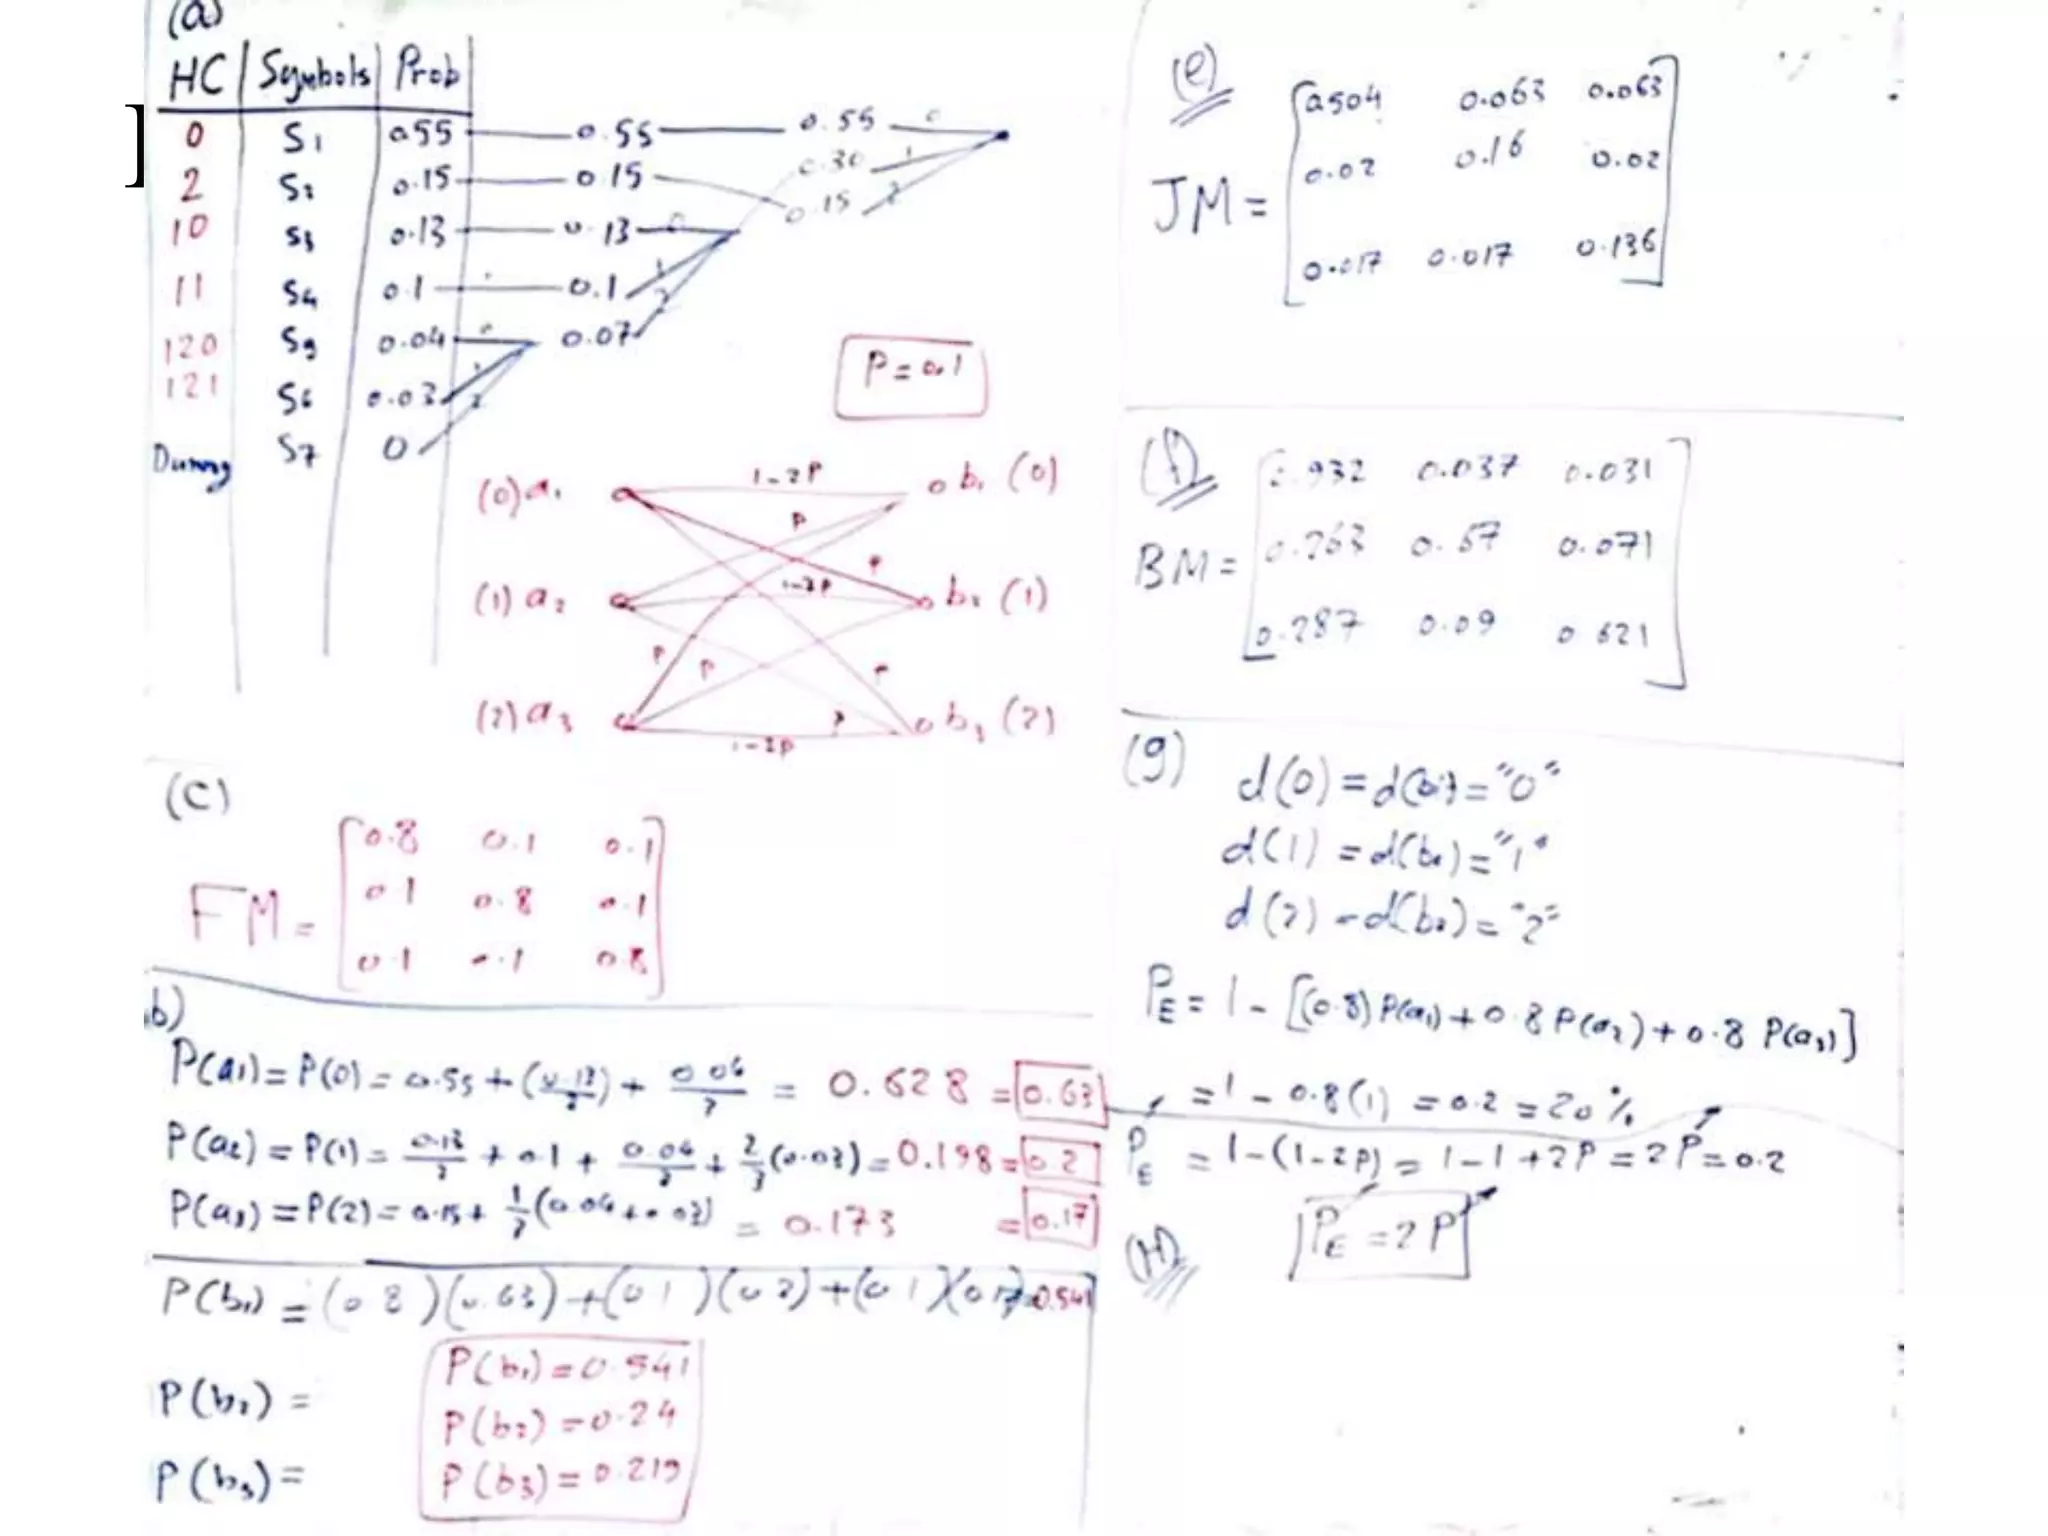 (a)
]
HC Symbols Prob
0 S1 0.55 0.55 0.55 0
2 S2 0.15 0.15 0.30 1
0.15 2
10 S3 0.13 0.13 0
11 S4 0.1 0.1 1
120 S5 0.04 0 0.07 2
121 S6 0.03 1
Dummy S7 0 2
P = 0.1
(0) a1 1-2P b1 (0)
P
P
(1) a2 1-2P b2 (1)
P P P
(2) a3 P b3 (2)
1-2P
(c)
FM =
0.8 0.1 0.1
0.1 0.8 0.1
0.1 0.1 0.8
b)
P(a1) = P(0) = 0.55 + (0.13/2) + 0.04/3 = 0.628 = 0.63
P(a2) = P(1) = 0.13/2 + 0.1 + 0.04/3 + 2/3 (0.03) = 0.198 = 0.2
P(a3) = P(2) = 0.15 + 1/3 (0.04 + 0.03) = 0.173 = 0.17
P(b1) = (0.8)(0.63) + (0.1)(0.2) + (0.1)(0.17) = 0.541
P(b2) =
P(b3) =
P(b1) = 0.541
P(b2) = 0.24
P(b3) = 0.219
(e)
JM =
0.504 0.063 0.063
0.02 0.16 0.02
0.017 0.017 0.136
(f)
BM =
0.932 0.037 0.031
0.263 0.67 0.071
0.287 0.09 0.621
(g) d(0) = d(b1) = "0"
d(1) = d(b2) = "1"
d(2) = d(b3) = "2"
PE = 1 - [(0.8) P(a1) + 0.8 P(a2) + 0.8 P(a3)]
= 1 - 0.8(1) = 0.2 = 20%
PE = 1-(1-2P) = 1-1+2P = 2P = 0.2
(H) PE = 2P